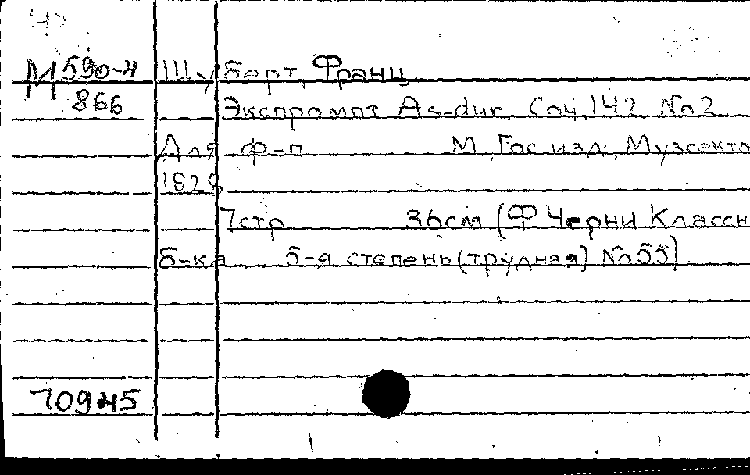 М 590-4 Шуберт, Франц
866 Экспромпт As-dur, Соч. 142 No 2
Для ф-п М. Гос. изд. Музсекто
7 стр 36см (Ф Черни Классн
б-ка 5-я степень (трудная) No 55)
70945